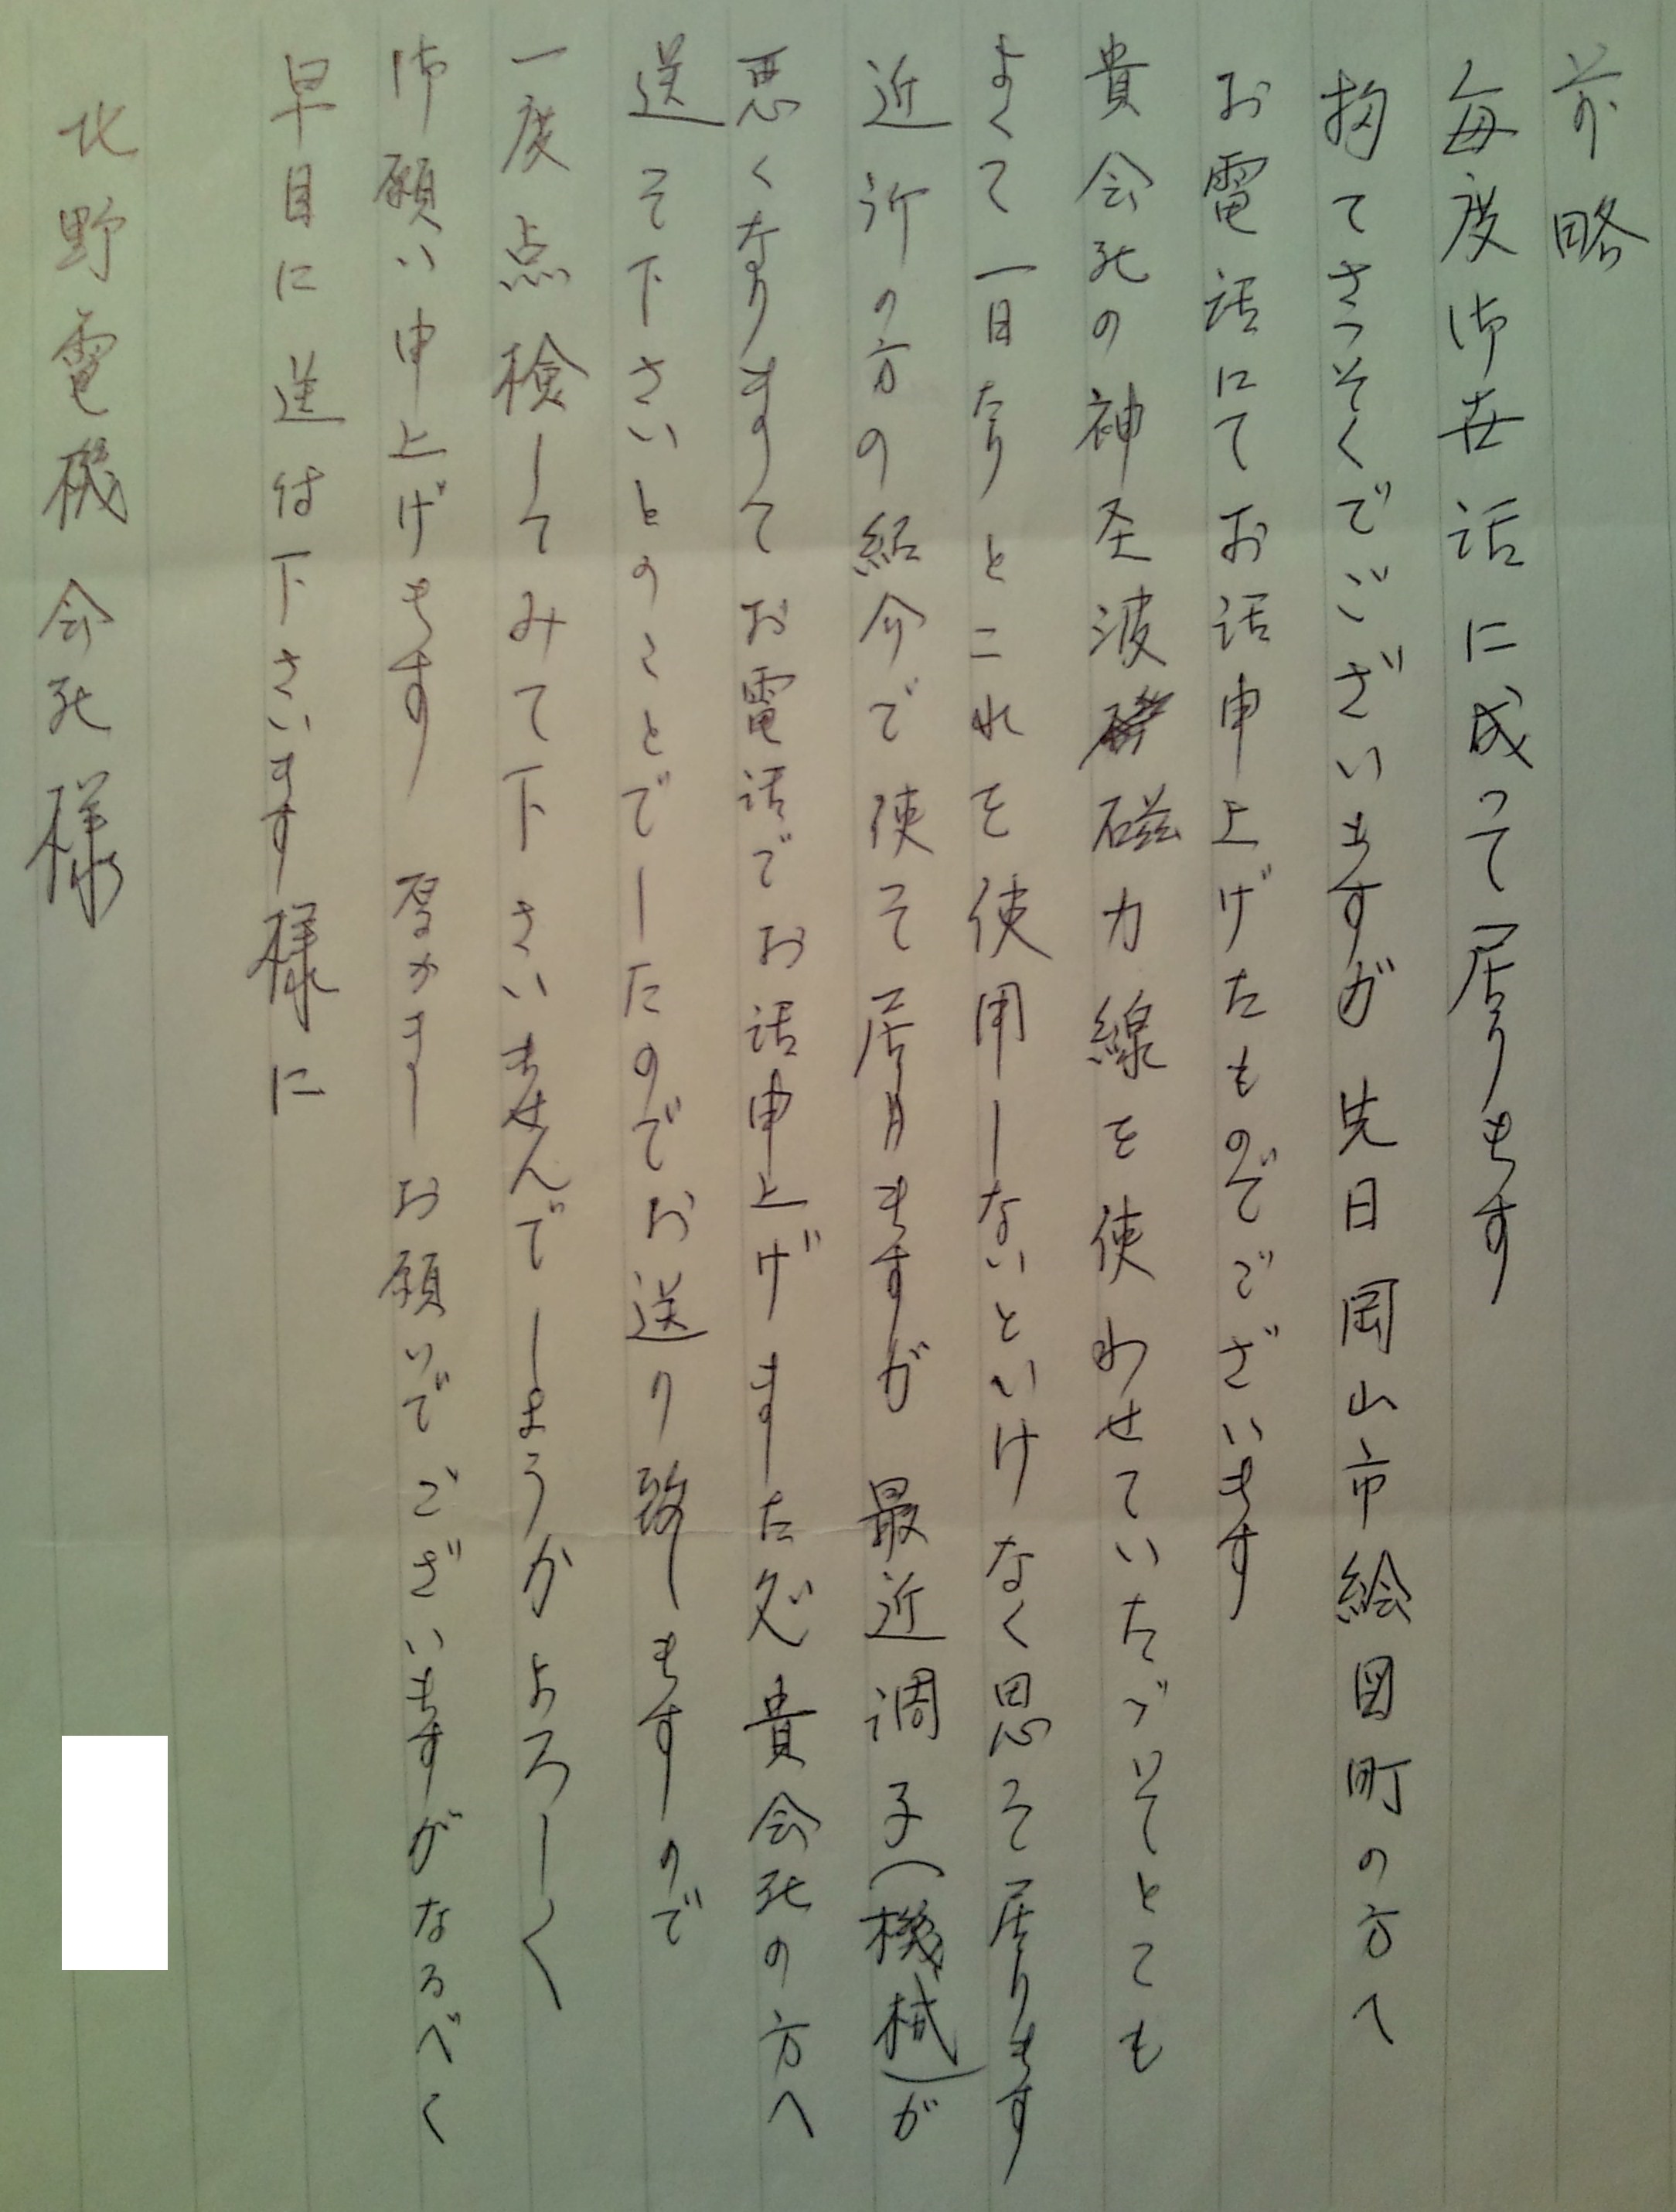 前略
毎度御世話に成って居ります
拘てさっそくでございますが先日岡山市絵図町の方へ
お電話にてお話申上げたものでございます
貴会死の神圣波磁力線を使わせていたゞいてとても
よくて一日なりとこれを使用しないといけなく思って居ります
近所の方の紹介で使って居りますが最近調子(機械)が
悪くなりましてお電話でお話申上げました処貴会死の方へ
送って下さいとのことでしたのでお送り致しますので
一度点検してみて下さいませんでしょうかよろしく
御願い申上げます 厚かましお願いでございますがなるべく
早目に送付下さいます様に
北野電機会死様